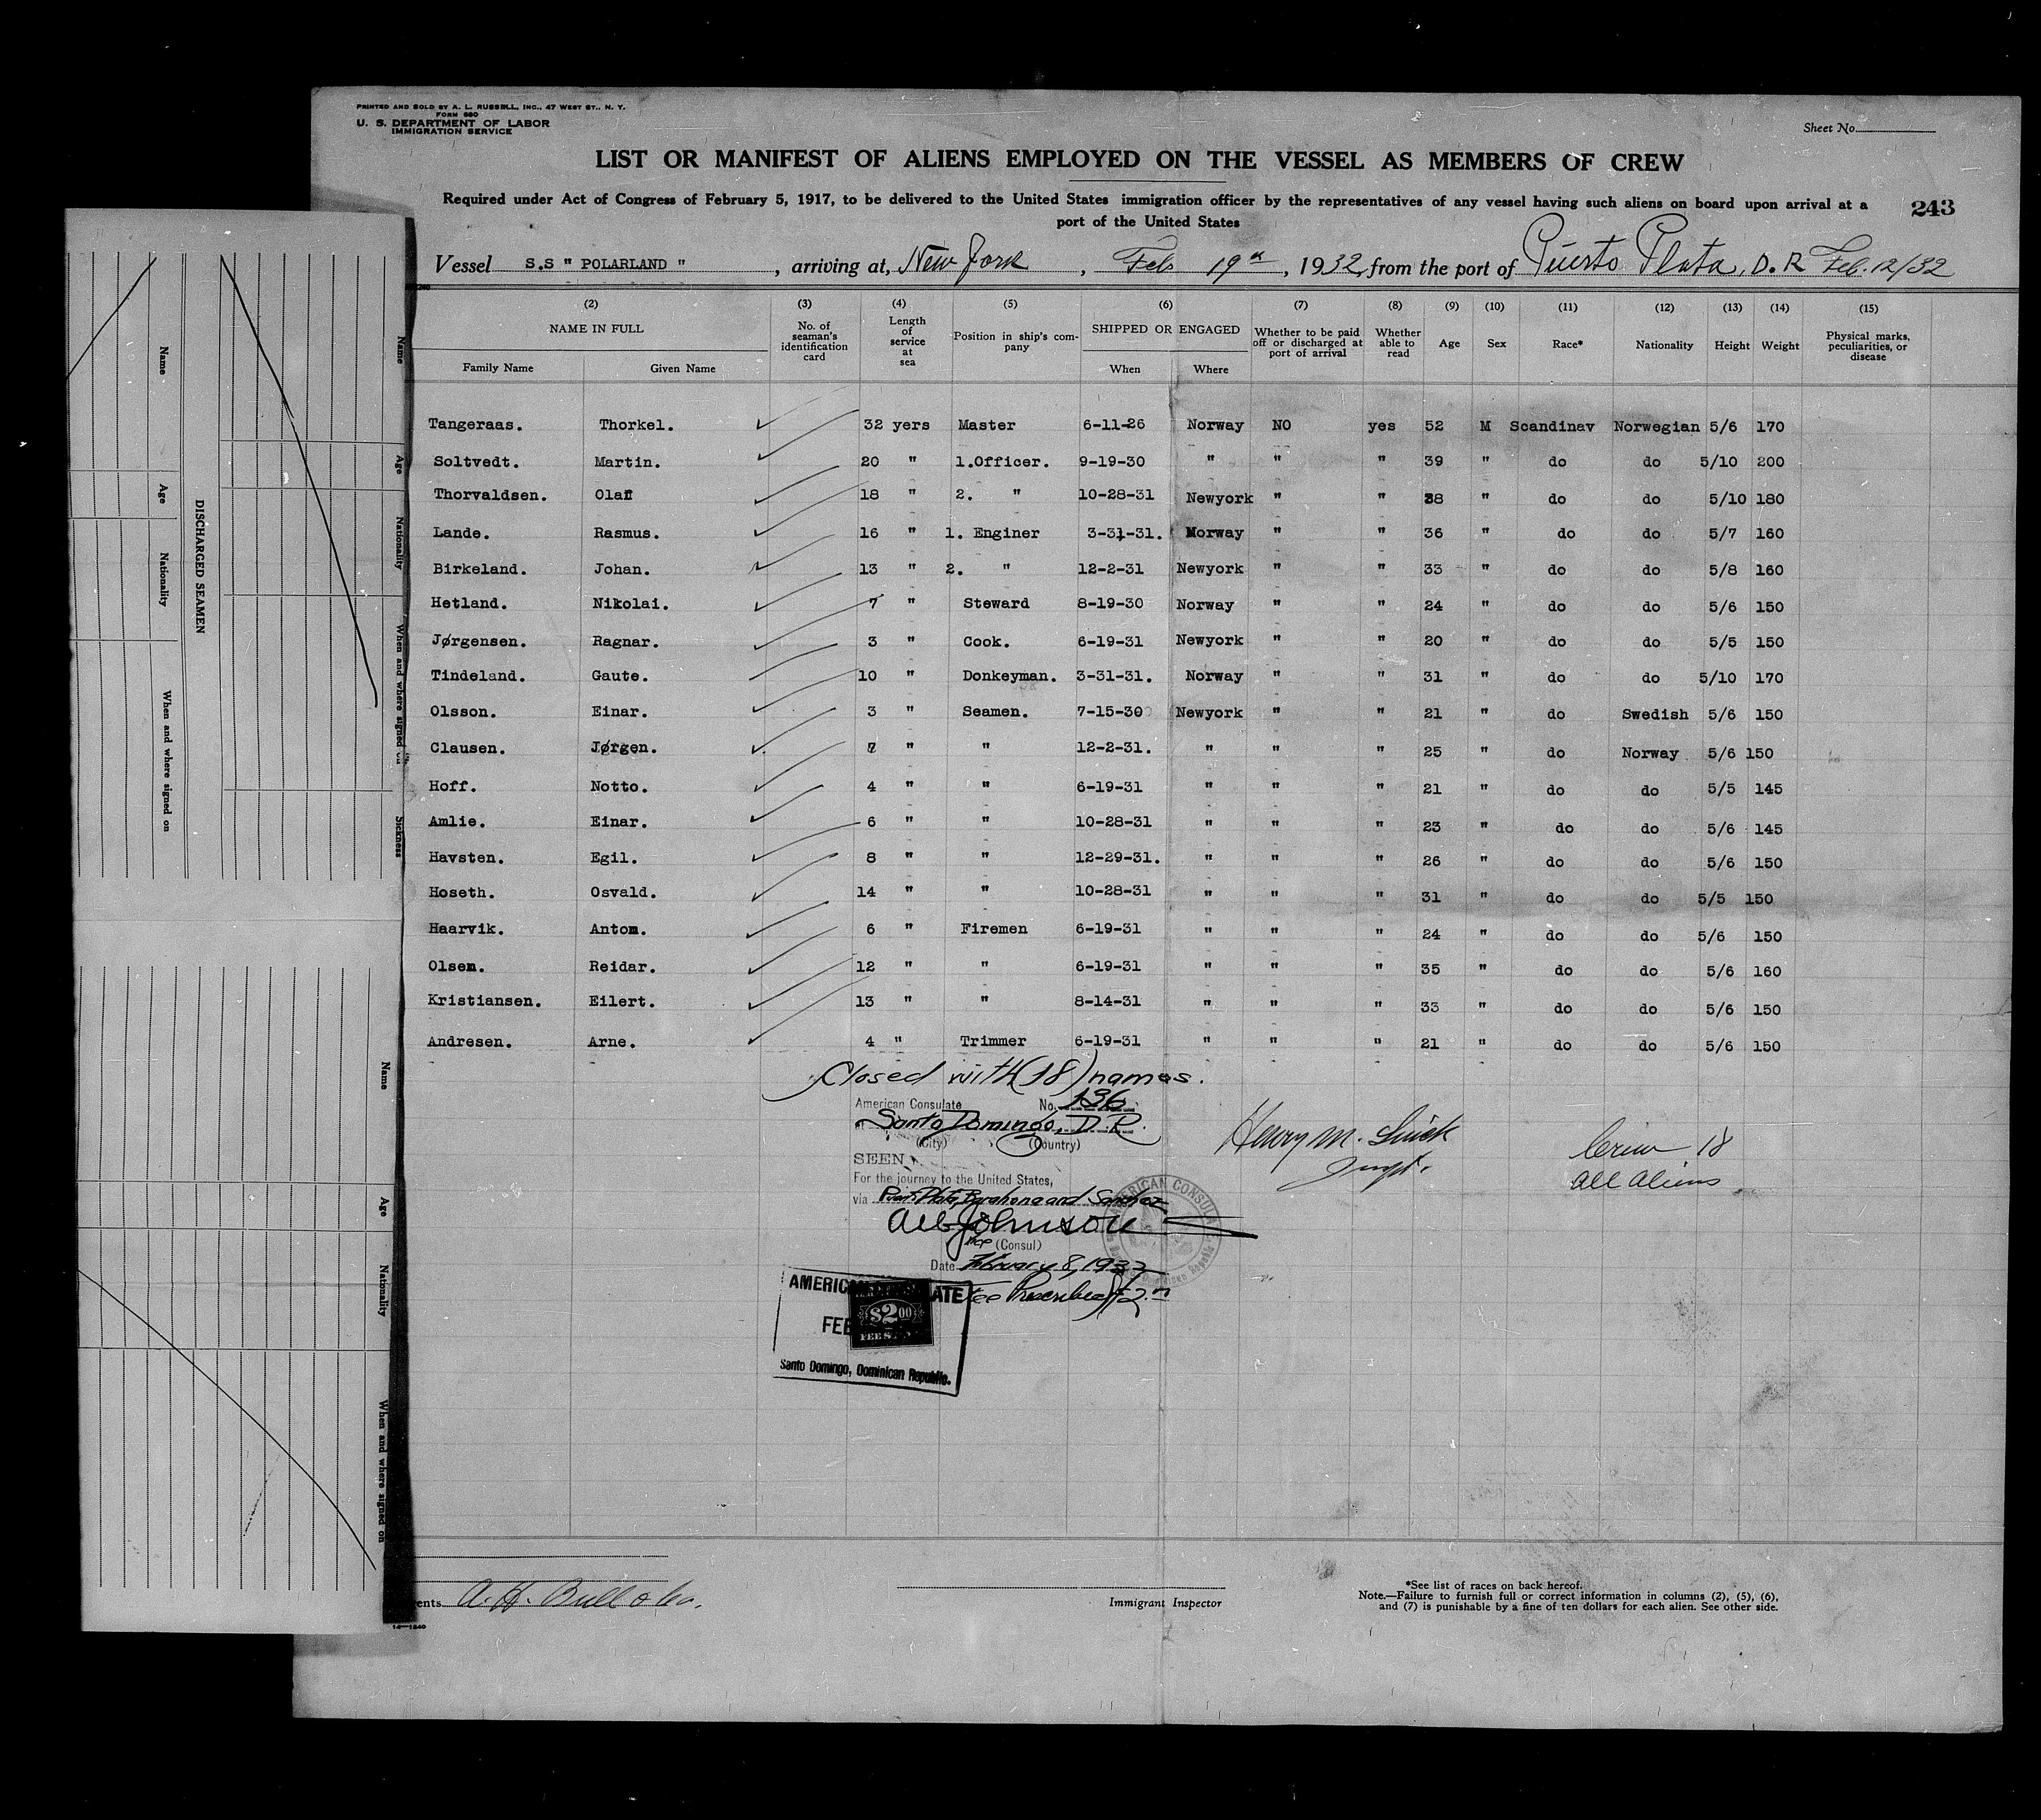 PRINTED AND SOLD BY A. L. RUSSELL, INC., 47 WEST ST., N. Y.
FORM 680
U. S. DEPARTMENT OF LABOR
IMMIGRATION SERVICE
Sheet No.
LIST OR MANIFEST OF ALIENS EMPLOYED ON THE VESSEL AS MEMBERS OF CREW
Required under Act of Congress of February 5, 1917, to be delivered to the United States immigration officer by the representatives of any vessel having such aliens on board upon arrival at a
port of the United States
243
Vessel S.S " POLARLAND ", arriving at, New York, Feb 19th, 1932, from the port of Puerto Plata, D. R Feb. 12/32
(2) (3) (4) (5) (6) (7) (8) (9) (10) (11) (12) (13) (14) (15)
NAME IN FULL No. of seaman's identification card Length of service at sea Position in ship's company SHIPPED OR ENGAGED Whether to be paid off or discharged at port of arrival Whether able to read Age Sex Race* Nationality Height Weight Physical marks, peculiarities, or disease
Family Name Given Name When Where
Tangeraas. Thorkel. 32 yers Master 6-11-26 Norway NO yes 52 M Scandinav Norwegian 5/6 170
Soltvedt. Martin. 20 " 1.Officer. 9-19-30 " " " 39 " do do 5/10 200
Thorvaldsen. Olaf 18 " 2. " 10-28-31 Newyork " " 38 " do do 5/10 180
Lande. Rasmus. 16 " 1. Enginer 3-31-31. Norway " " 36 " do do 5/7 160
Birkeland. Johan. 13 " 2. " 12-2-31 Newyork " " 33 " do do 5/8 160
Hetland. Nikolai. 7 " Steward 8-19-30 Norway " " 24 " do do 5/6 150
Jørgensen. Ragnar. 3 " Cook. 6-19-31 Newyork " " 20 " do do 5/5 150
Tindeland. Gaute. 10 " Donkeyman. 3-31-31. Norway " " 31 " do do 5/10 170
Olsson. Einar. 3 " Seamen. 7-15-30 Newyork " " 21 " do Swedish 5/6 150
Clausen. Jørgen. 7 " " 12-2-31. " " " 25 " do Norway 5/6 150
Hoff. Notto. 4 " " 6-19-31 " " " 21 " do do 5/5 145
Amlie. Einar. 6 " " 10-28-31 " " " 23 " do do 5/6 145
Havsten. Egil. 8 " " 12-29-31. " " " 26 " do do 5/6 150
Hoseth. Osvald. 14 " " 10-28-31 " " " 31 " do do 5/5 150
Haarvik. Anton. 6 " Firemen 6-19-31 " " " 24 " do do 5/6 150
Olsen. Reidar. 12 " " 6-19-31 " " " 35 " do do 5/6 160
Kristiansen. Eilert. 13 " " 8-14-31 " " " 33 " do do 5/6 150
Andresen. Arne. 4 " Trimmer 6-19-31 " " " 21 " do do 5/6 150
Closed with (18) names.
American Consulate No. 136
Santo Domingo, D.R.
(City) (Country)
SEEN
For the journey to the United States,
via Puerto Plata, Barahona and Sanchez
Johnson
Vice (Consul)
Date February 8, 1932
Henry M.
Inspt.
Crew 18
All Aliens
AMERICAN CONSULA
AMERICAN CONSULATE
$2 00
FEE STAMP
FEB
Santo Domingo, Dominican Republic.
ents A. H. Bull & Co.
Immigrant Inspector
*See list of races on back hereof.
Note.—Failure to furnish full or correct information in columns (2), (5), (6),
and (7) is punishable by a fine of ten dollars for each alien. See other side.
14—1240
DISCHARGED SEAMEN
Name Age Nationality When and where signed on
Name Age Nationality When and where signed on Sickness
Name Age Nationality When and where signed on